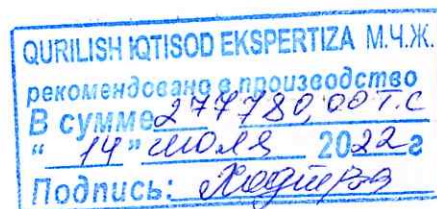 QURILISH IQTISOD EKSPERTIZA М.Ч.Ж.
рекомендовано в производство
В сумме 277780,00 т.с
" 14 " июля 2022 г
Подпись: